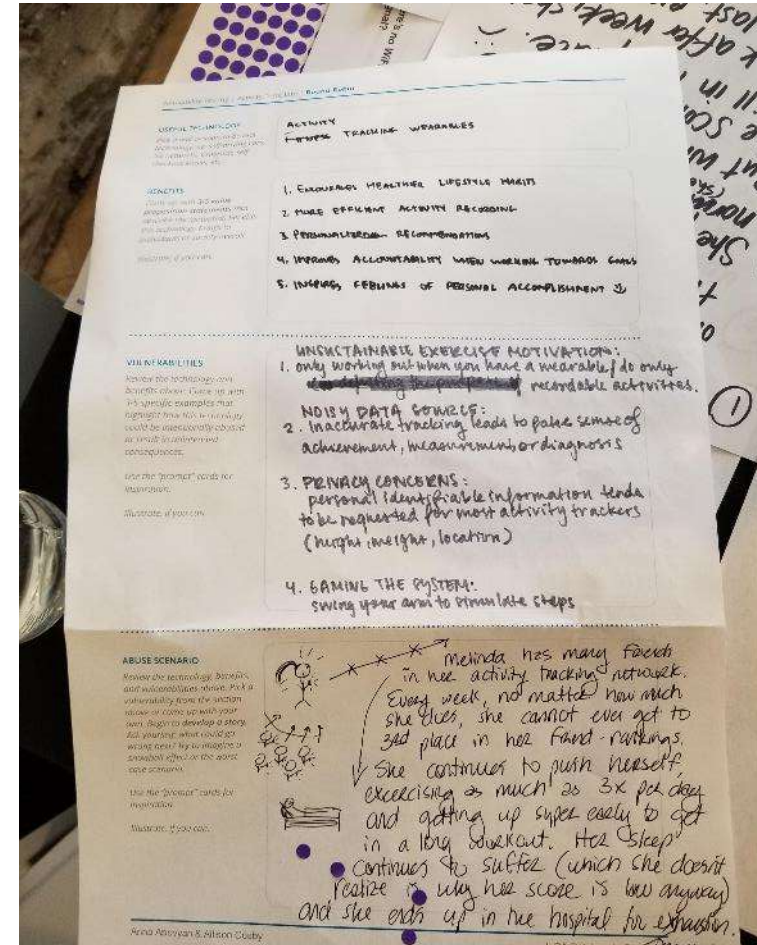 ere's no WiF
gnal?
last
k after weekly
USEFUL TECHNOLOGY
ACTIVITY
TRACKING WEARABLES
BENEFITS
Come up with 3-5 value
Illustrate, if you can.
1. ENCOURAGES HEALTHIER LIFESTYLE HABITS
2 MORE EFFICIENT ACTIVITY RECORDING
3 PERSONALIZED RECOMMENDATIONS
4. IMPROVES ACCOUNTABILITY WHEN WORKING TOWARDS GOALS
5. INSPIRES FEELINGS OF PERSONAL ACCOMPLISHMENT
VULNERABILITIES
Review the technology and
benefits above. Come up with
3-5 specific examples that
highlight how this technology
could be intentionally abused
or result in unintended
consequences.
Use the "prompt" cards for
inspiration.
Illustrate, if you can.
UNSUSTAINABLE EXERCISE MOTIVATION:
1. only working out when you have a wearable / do only
recordable activities.
NOISY DATA SOURCE:
2. Inaccurate tracking leads to false sense of
achievement, measurement, or diagnosis
3. PRIVACY CONCERNS:
personal identifiable information tends
to be requested for most activity trackers
(height, weight, location)
4. GAMING THE SYSTEM:
swing your arm to simulate steps
1
ABUSE SCENARIO
Review the technology, benefits,
and vulnerabilities above. Pick a
vulnerability from the section
above or come up with your
own. Begin to develop a story.
Ask yourself: what could go
wrong next? Try to imagine a
snowball effect or the worst
case scenario.
Use the "prompt" cards for
inspiration.
Illustrate, if you can.
Melinda has many friends
in her activity tracking network.
Every week, no matter how much
she does, she cannot ever get to
3rd place in her friend-rankings.
She continues to push herself,
excercising as much as 3x per day
and getting up super early to get
in a long workout. Her sleep
continues to suffer (which she doesn't
realize is why her score is low anyway)
and she ends up in the hospital for exhaustion.
& Allison Cosby